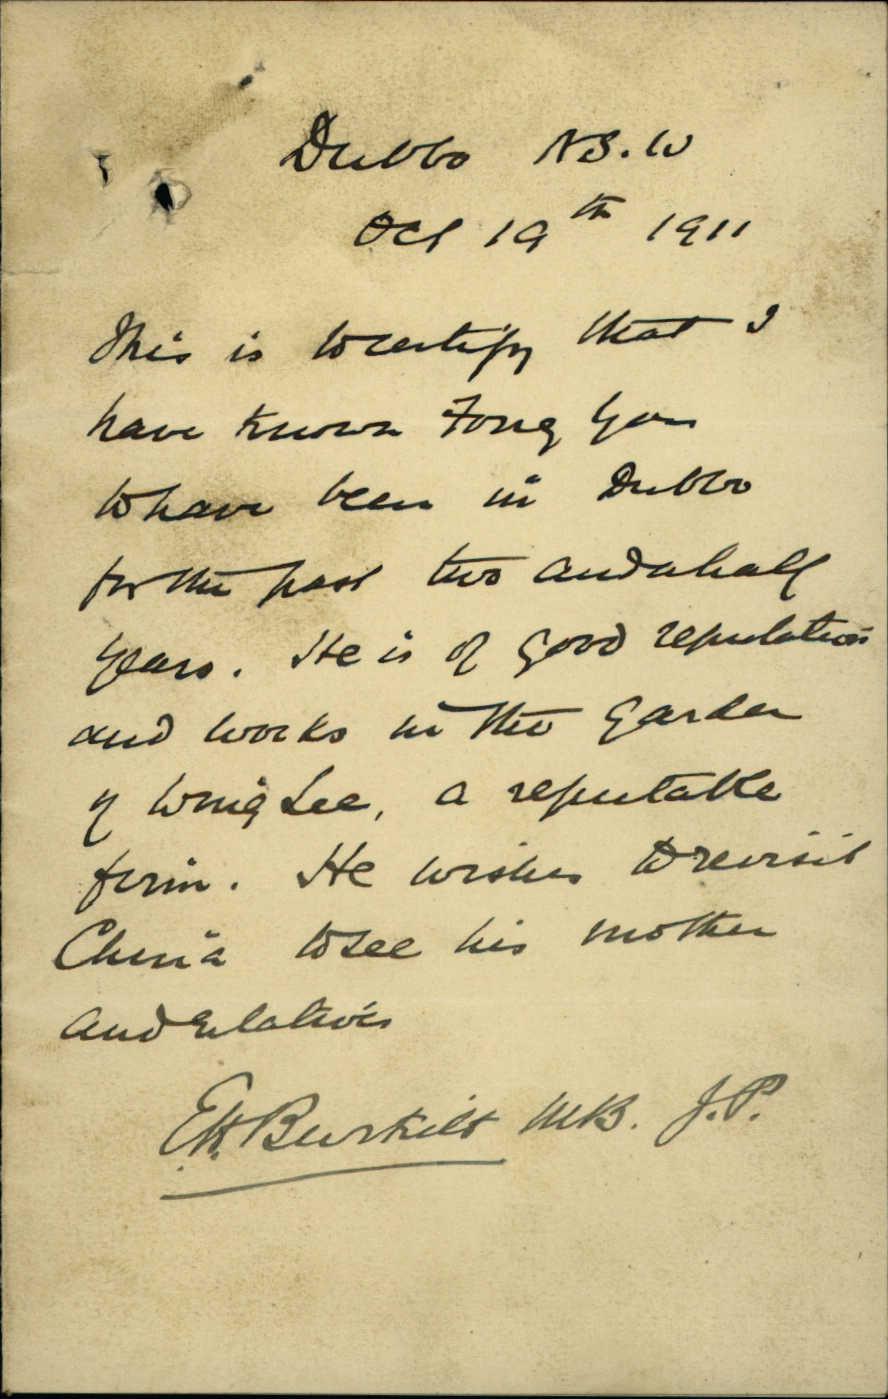 Dubbo N.S.W
Oct 19th 1911
This is to certify that I
have known Fong You
to have been in Dubbo
for the past two and a half
years. He is of good reputation
and works in the garden
of Wing Lee, a reputable
firm. He wishes to revisit
China to see his mother
and relatives
E.H. Burkitt M.B. J.P.